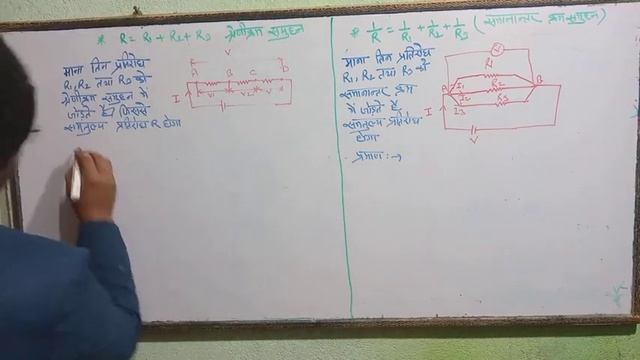 * R = R1 + R2 + R3 श्रेणीक्रम समूहन
माना तिन प्रतिरोध
R1, R2 तथा R3 को
श्रेणीक्रम समूहन में
जोड़ते हैं, जिससे
समतुल्य प्रतिरोध R होगा
V
A B C D
V1 V2
I
* 1/R = 1/R1 + 1/R2 + 1/R3 ( समानान्तर क्रम समूहन )
माना तिन प्रतिरोध
R1, R2 तथा R3 को
समानान्तर क्रम
में जोड़ते हैं
समतुल्य प्रतिरोध
होगा
प्रमाण :→
V
R1
A I1 R2 B
I2 R3
I I3
V